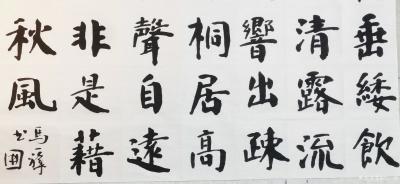 垂緌飲
清露流
響出疎
桐居高
聲自遠
非是藉
秋風